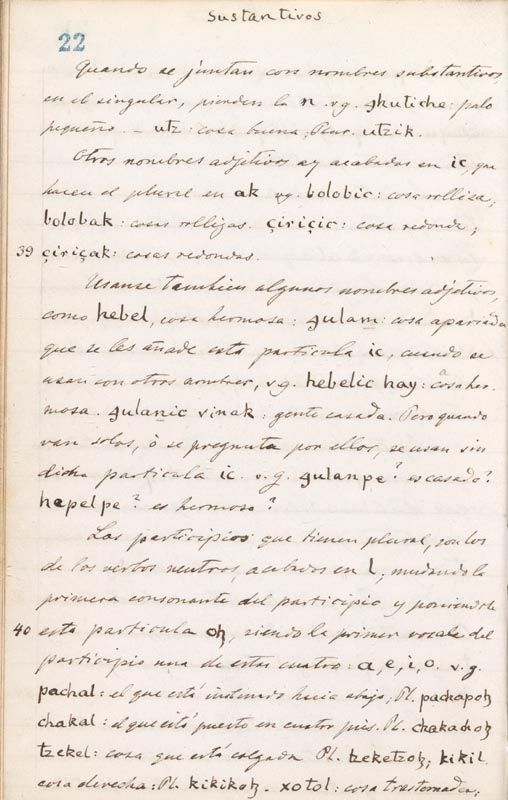 Sustantivos
22
Quando se juntan con nombres substantivos
en el singular, pierden la n. v.g. ghutiche: palo
pequeño. – utz: cosa buena; Plur. utzik.
Otros nombres adjetivos ay acabados en ic, que
hacen el plural en ak v.g. bolobic: cosa rolliza;
bolobak: cosas rollizas. çiriçic: cosa redonda;
39 çiriçak: cosas redondas.
Usanse tambien algunos nombres adjetivos,
como hebel, cosa hermosa: gulam: cosa apariada
que se les añade esta particula ic, cuando se
usan con otros nombres, v.g. hebelic hay: casa her-
mosa. gulanic vinak: gente casada. Pero quando
van solos, ò se pregunta por ellos, se usan sin
dicha particula ic. v.g. gulanpe? es casado?
hepelpe? es hermoso?
Los participios que tienen plural, son los
de los verbos neutros, acabados en l, mudando la
primera consonante del participio y poniendole
40 esta particula oꜩ, siendo la primer vocale del
participio una de estas cuatro: a, e, i, o. v.g.
pachal: el que está hacia abajo; Pl. pachapoꜩ
chakal: el que está puesto en cuatro pies. Pl. chakachoꜩ
tzekel: cosa que está colgada Pl. tzeketzoꜩ; kikil
cosa derecha: Pl. kikikoꜩ. xotol: cosa trastornada;